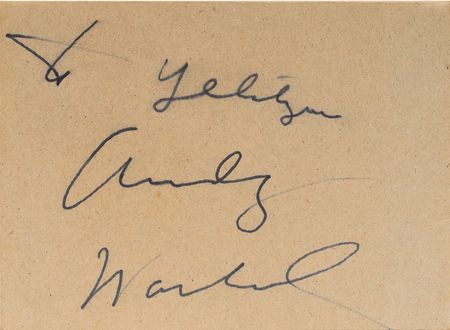 to Yelitza
Andy
Warhol